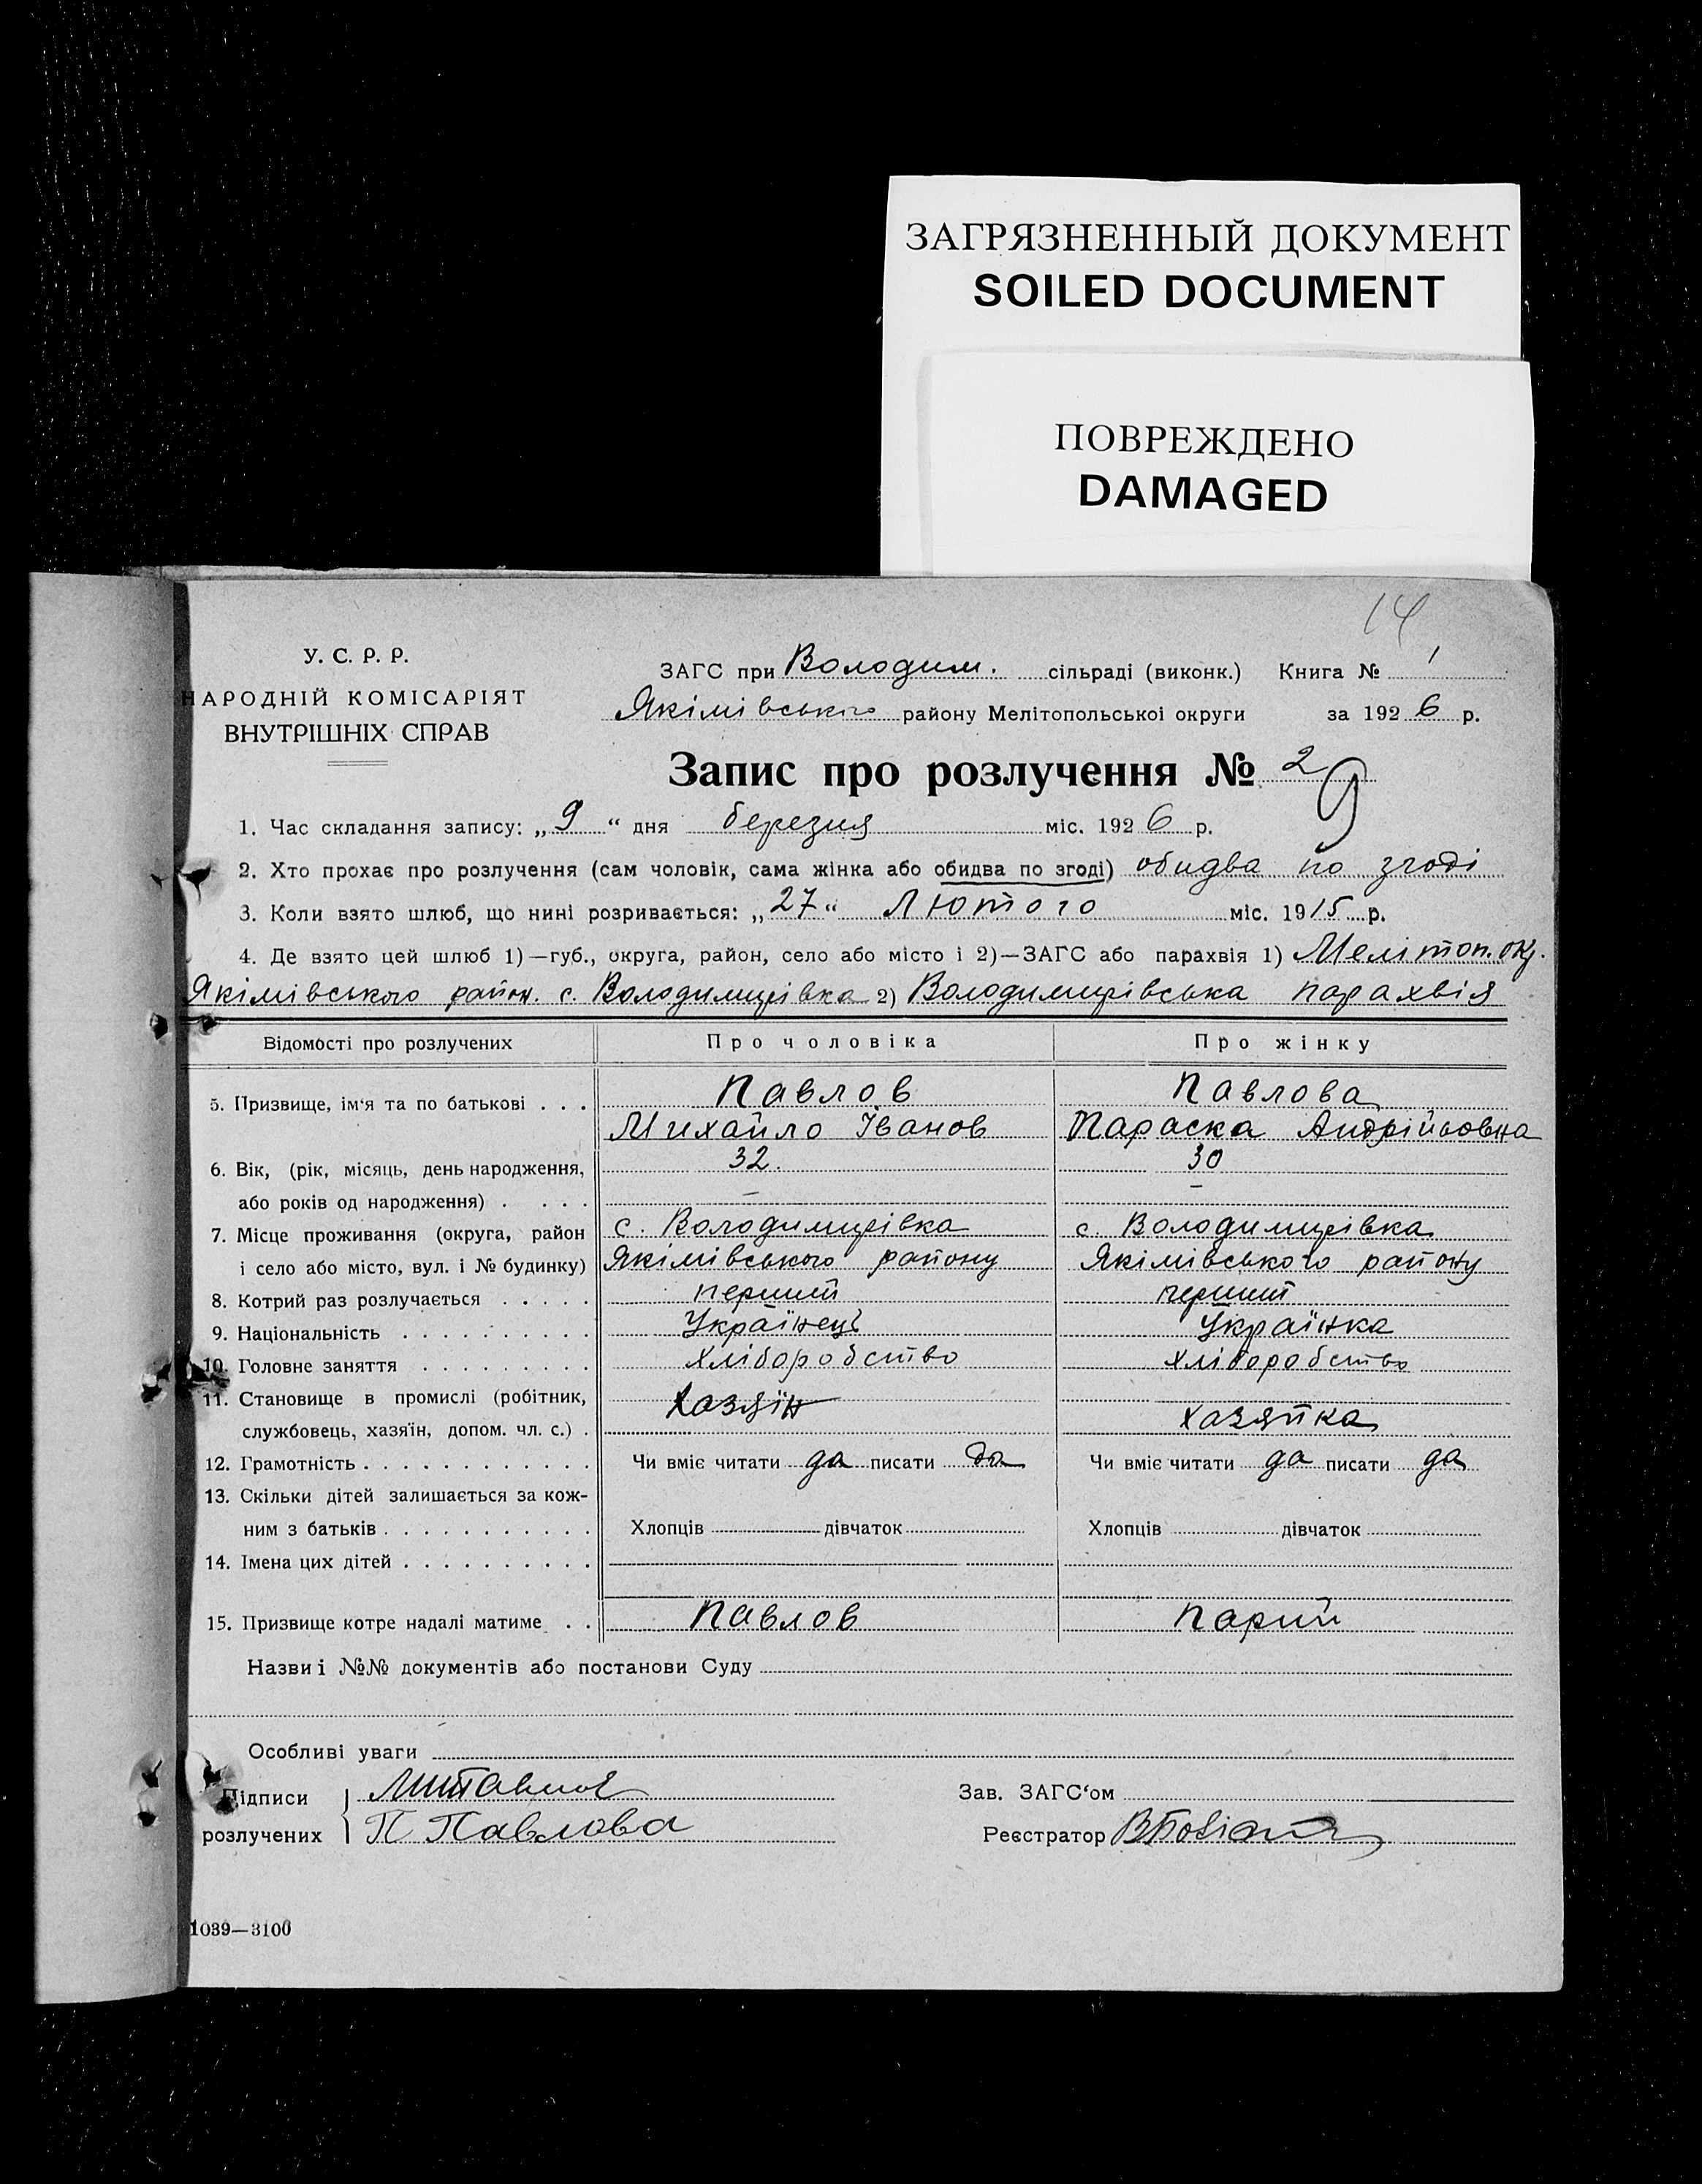 ЗАГРЯЗНЕННЫЙ ДОКУМЕНТ
SOILED DOCUMENT
ПОВРЕЖДЕНО
DAMAGED
14
У. С. Р. Р.
НАРОДНІЙ КОМІСАРІЯТ
ВНУТРІШНІХ СПРАВ
ЗАГС при Володим. сільраді (виконк.) Книга № 1
Якімівського району Мелітопольської округи за 1926 р.
Запис про розлучення № 2
9
1. Час складання запису: „9“ дня березня міс. 1926 р.
2. Хто прохає про розлучення (сам чоловік, сама жінка або обидва по згоді) обидва по згоді
3. Коли взято шлюб, що нині розривається: „27“ Лютого міс. 1915 р.
4. Де взято цей шлюб 1)—губ., округа, район, село або місто і 2)—ЗАГС або парахвія 1) Мелітоп. окр.
Якімівського район. с. Володимирівка 2) Володимирівська парахвія
Відомості про розлучених Про чоловіка Про жінку
5. Призвище, ім‘я та по батькові . . . Павлов Павлова
Михайло Іванов Параска Андрійовна
6. Вік, (рік, місяць, день народження, 32. 30
або років од народження) . . . . – –
7. Місце проживання (округа, район с. Володимирівка с. Володимирівка
і село або місто, вул. і № будинку) Якімівського району Якімівського району
8. Котрий раз розлучається . . . . . перший перший
9. Національність . . . . . . . . . . Українець Українка
10. Головне заняття . . . . . . . . . хліборобство хліборобство
11. Становище в промислі (робітник, хазяїн
службовець, хазяїн, допом. чл. с.) . хазяйка
12. Грамотність . . . . . . . . . . . . Чи вміє читати да писати да Чи вміє читати да писати да
13. Скільки дітей залишається за кож-
ним з батьків . . . . . . . . . . . Хлопців дівчаток Хлопців дівчаток
14. Імена цих дітей . . . . . . . . . .
15. Призвище котре надалі матиме . . Павлов Парий
Назви і №№ документів або постанови Суду
Особливі уваги
Підписи Зав. ЗАГС‘ом
розлучених П Павлова Реєстратор
1039—3100